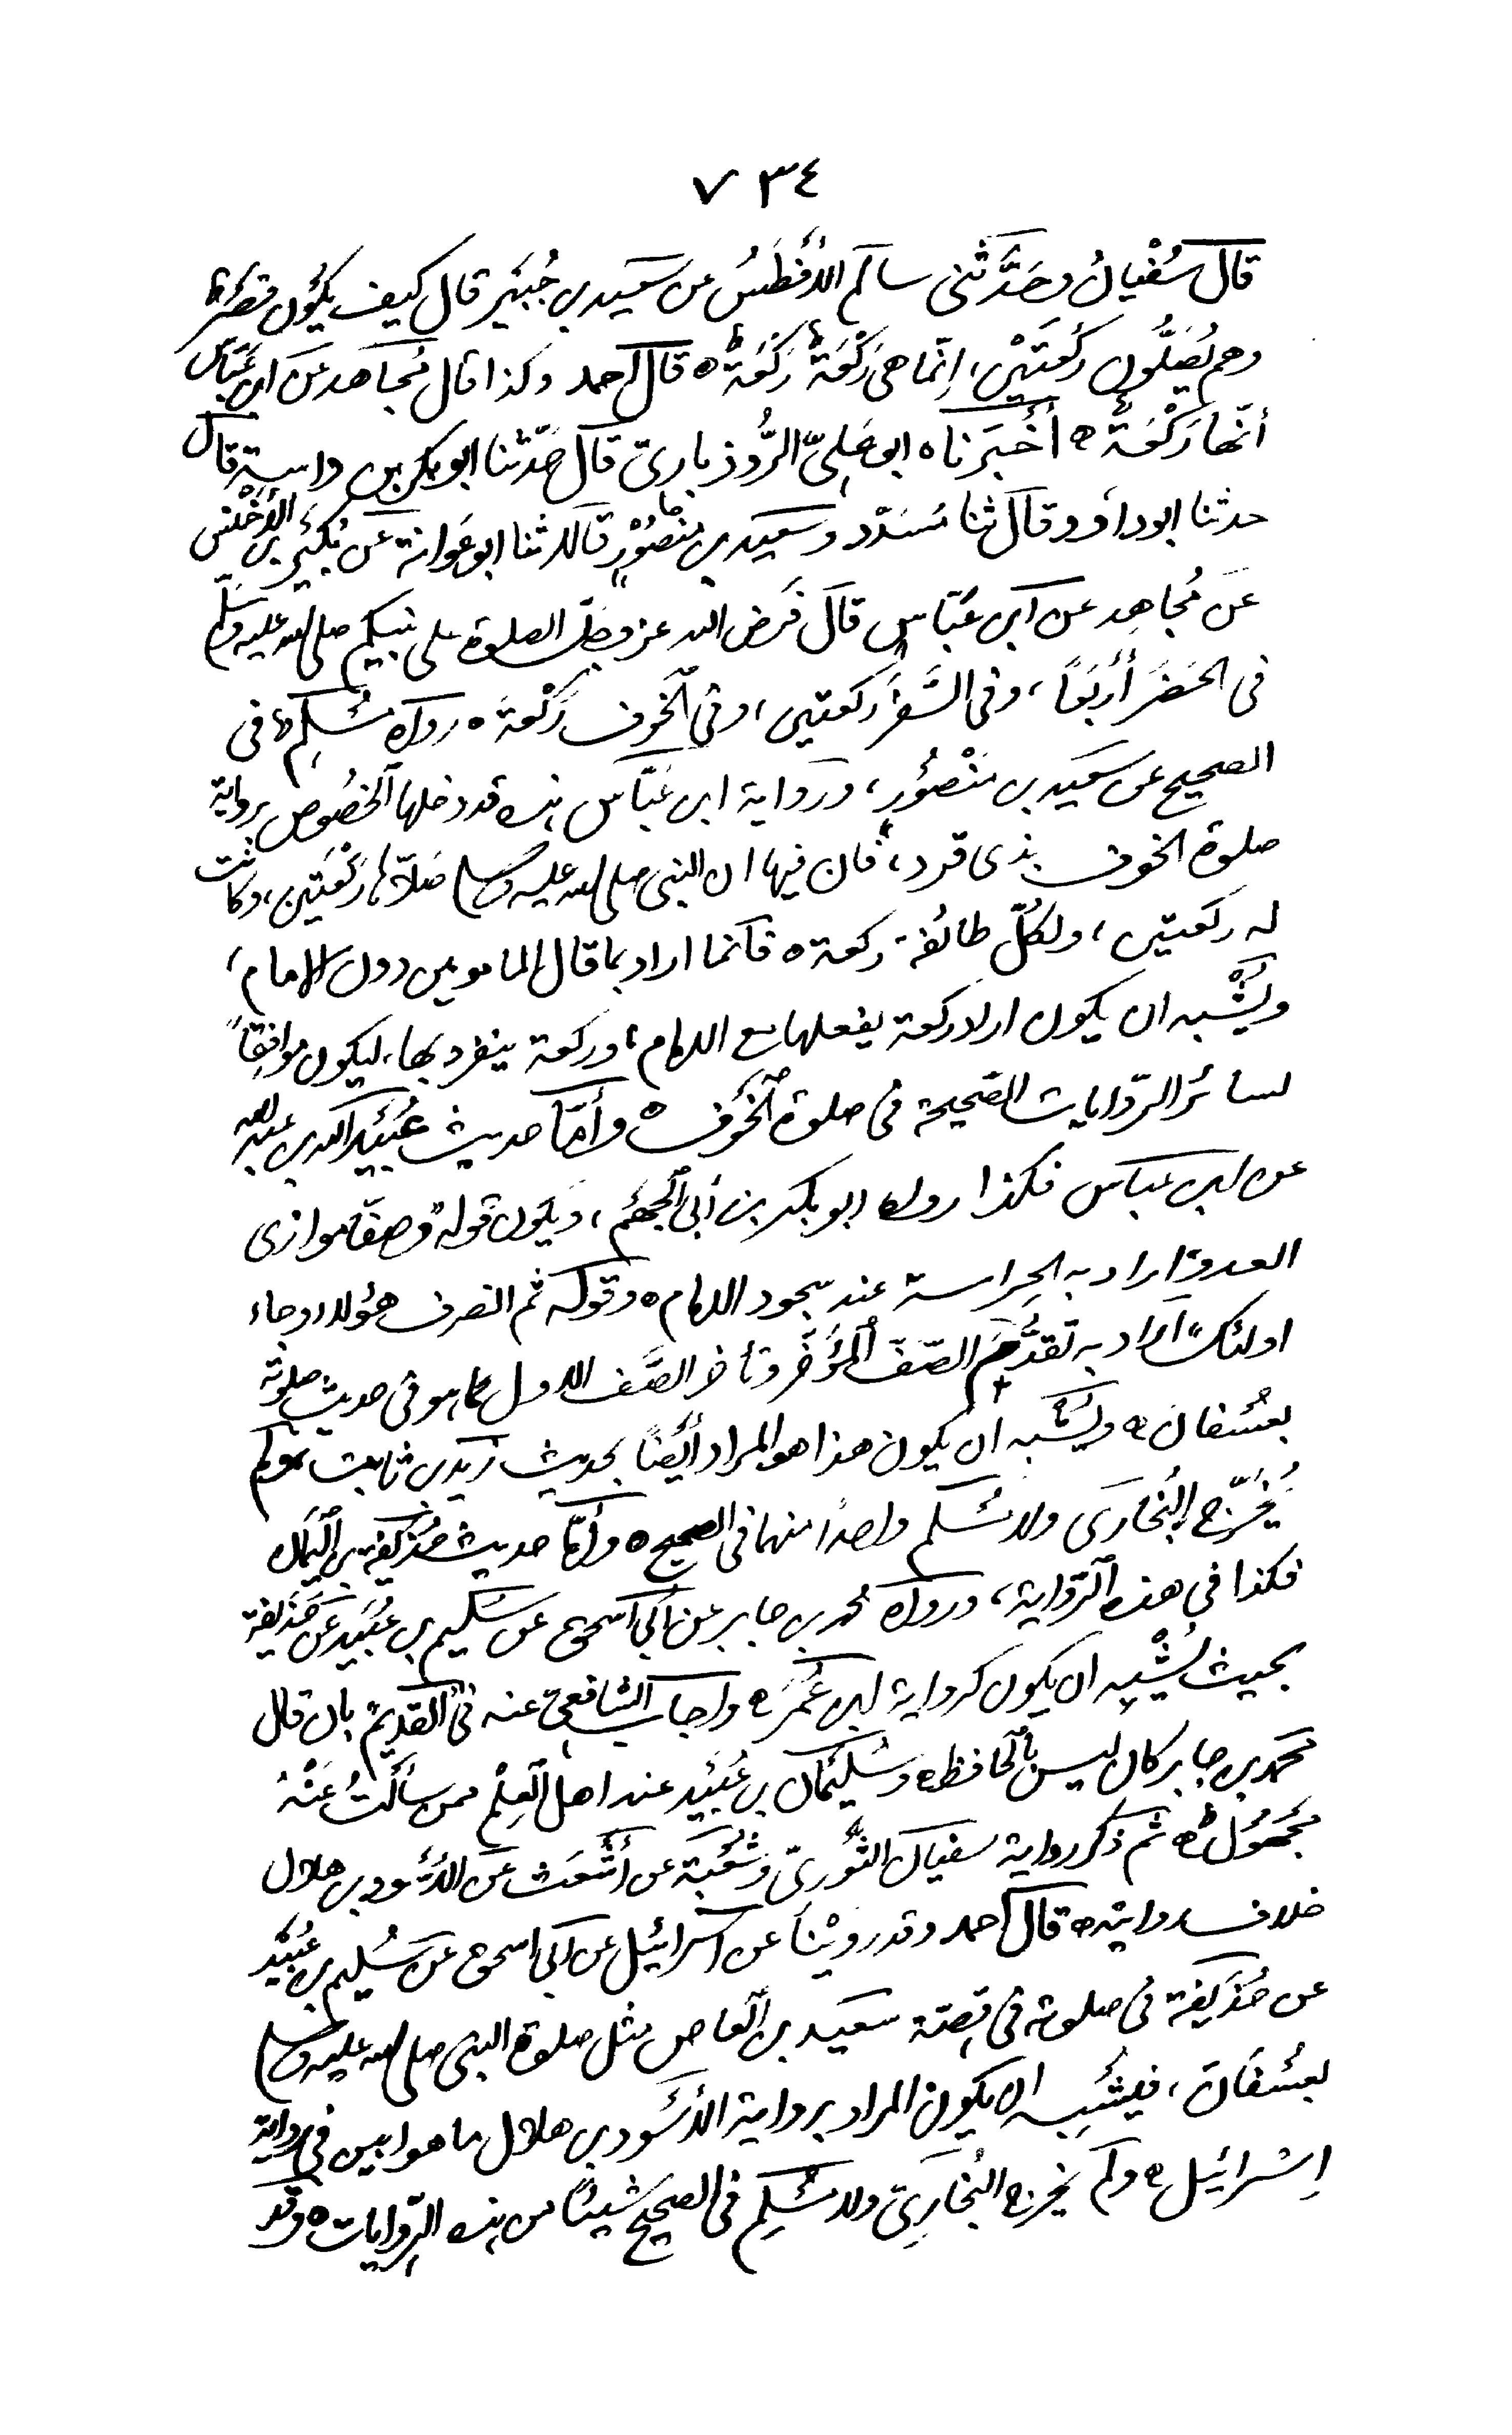 ٧٣٤
قال سُفْيانُ وحَدَّثَنى سالم الأَفْطَسُ عن سَعِيد بن جُبَيْر قال كيف يكُون قصرًا
وهم يُصَلُّون ركْعَتَيْن، إنّما هى رَكْعَةٌ رَكْعَةٌ ه قال أحمد وكذا قال مُجاهد عن ابن عَبّاس
أنّها رَكْعَةٌ ه أَخْبَرَناه ابو عَلِىّ الرُّوذبارىّ قال حَدّثنا ابو بكر بن داسة قال
حدثنا ابو داؤد قال ثنا مُسَدّد وسَعِيد بن مَنْصُوْرٍ قالا ثنا ابو عَوانة عن بُكَيْر بن الأَخْنس
عن مُجاهِد عن ابن عَبّاس قال فَرض الله عز وجلّ الصلوة على نبيكم صلى الله عليه وسلّم
فى الحَضَر أَرْبَعًا، وفى السَّفَر ركعتين، وفى الخَوف رَكْعَةً ه رواه مُسْلِمٌ فى
الصحيح عن سَعِيد بن مَنْصُوْرٍ، ورَواية ابن عَبّاس هذه قد دخلها الخُصُوص برواية
صلوة الخوف بذى قرد، فان فيها ان النبى صلى الله عليه وسلم صَلاّها رَكْعَتَين، وكانت
له ركعتين، ولكُلّ طائفة ركعة ه فكأنما اراد بما قال المامومين دون الامام،
ويُشْبِه ان يكون اراد ركعة يفعلها مع الامام، وركعة ينفرد بها، ليكون موافِقًا
لسائر الرّوايات الصّحيحة فى صلوة الخَوْف ه وأَمّا حديث عُبَيْد الله بن عبد الله
عن ابن عباس فكذا رواه ابو بكر بن أبى الجَهْم، ويكُون قوله وصفّا موازى
العدوّ اراد به الحِراسة عند سجود الامام ه وقوله ثم انصرف هؤلاء وجاء
اولئك اراد به تَقَدُّمَ الصّفّ المُؤَخَّر وتأخر الصّف الاول كما هو فى حديث صلوته
بعُسْفان ه ويُشْبه ان يكون هذا هو المراد أَيْضًا بحديث زَيْد بن ثابت ولم
يُخَرّج البُخارى ولا مُسْلم واحدًا منهما فى الصحيح ه وأمّا حديث حُذَيْفة بن اليَمان
فكذا فى هذه الرّواية، ورواه محمد بن جابر عن أبى اسحق عن سُلَيم بن عُبَيد عن حُذَيفة
بحيث يُشْبِه ان يكون كرواية ابن عُمَر ه واجاب الشافعىّ عنه فى القَدِيْم بان قال
محمد بن جابر كان ليس بالحافظ ه وسُلَيْمان بن عُبَيْد عند اهل العِلْم ممن سأَلْتُ عَنْهُ
مَجْهُوْلٌ ه ثم ذكر رواية سفيان الثّوريّ وشُعْبَة عن أَشْعَث عن الأَسْود بن هلال
خلاف روايته ه قال أحمد وقد رَوَيْنا عن اسرائيل عن ابى اسحق عن سُلَيم بن عُبَيْد
عن حُذَيفة فى صلوته فى قِصّة سَعِيد بن العاص مثل صلوة النبى صلى الله عليه وسلم
بعُسْفان، فيُشْبِه ان يكون المراد برواية الأَسْود بن هلال ما هو ابين فى رواية
اِسْرائيل ه ولم يخرج البُخارِىّ ولا مُسْلِم فى الصحيح شيئًا من هذه الرّوايات ه وقد